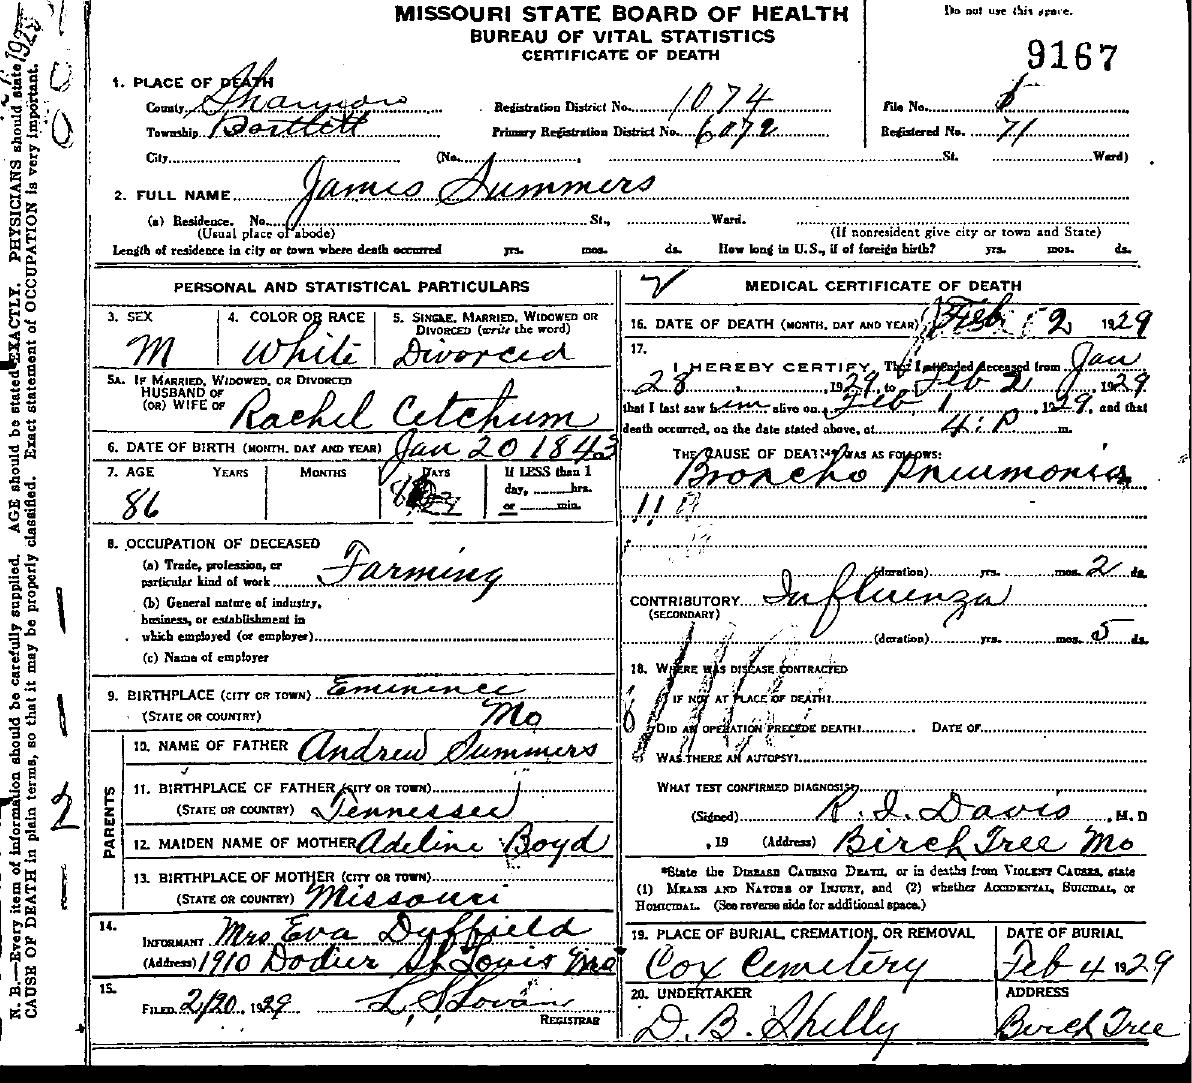 MISSOURI STATE BOARD OF HEALTH
BUREAU OF VITAL STATISTICS
CERTIFICATE OF DEATH
Do not use this space.
9167
1. PLACE OF DEATH
County Shannon Registration District No. 1074 File No.
Township Bartlett Primary Registration District No. 6072 Registered No. 71
City (No. , St. Ward)
2. FULL NAME James Summers
(a) Residence. No. St., Ward.
(Usual place of abode) (If nonresident give city or town and State)
Length of residence in city or town where death occurred yrs. mos. ds. How long in U.S., if of foreign birth? yrs. mos. ds.
PERSONAL AND STATISTICAL PARTICULARS
3. SEX 4. COLOR OR RACE 5. SINGLE, MARRIED, WIDOWED OR
DIVORCED (write the word)
M White Divorced
5A. IF MARRIED, WIDOWED, OR DIVORCED
HUSBAND OF
(OR) WIFE OF Rachel Cetchum
6. DATE OF BIRTH (MONTH, DAY AND YEAR) Jan 20 1843
7. AGE YEARS MONTHS DAYS If LESS than 1
day, hrs.
or min.
86
8. OCCUPATION OF DECEASED
(a) Trade, profession, or
particular kind of work Farming
(b) General nature of industry,
business, or establishment in
which employed (or employer)
(c) Name of employer
9. BIRTHPLACE (CITY OR TOWN) Eminence
(STATE OR COUNTRY) Mo
PARENTS
10. NAME OF FATHER Andrew Summers
11. BIRTHPLACE OF FATHER (CITY OR TOWN)
(STATE OR COUNTRY) Tennessee
12. MAIDEN NAME OF MOTHER Adeline Boyd
13. BIRTHPLACE OF MOTHER (CITY OR TOWN)
(STATE OR COUNTRY) Missouri
14.
INFORMANT Mrs Eva Duffield
(Address) 1910 Dodier St Louis Mo
15.
FILED 2/20 1929
REGISTRAR
MEDICAL CERTIFICATE OF DEATH
16. DATE OF DEATH (MONTH, DAY AND YEAR) Feb 2 1929
17.
I HEREBY CERTIFY, That I attended deceased from Jan
28, 1929, to Feb 2 1929
that I last saw him alive on Feb 1, 1929, and that
death occurred, on the date stated above, at 4:P m.
THE CAUSE OF DEATH* WAS AS FOLLOWS:
Broncho Pneumonia
(duration) yrs. mos. 2 ds.
CONTRIBUTORY Influenza
(SECONDARY)
(duration) yrs. mos. 5 ds.
18. WHERE WAS DISEASE CONTRACTED
IF NOT AT PLACE OF DEATH?
DID AN OPERATION PRECEDE DEATH? DATE OF
WAS THERE AN AUTOPSY?
WHAT TEST CONFIRMED DIAGNOSIS?
(Signed) R. I. Davis, M.D
, 19 (Address) Birch Tree Mo
*State the DISEASE CAUSING DEATH, or in deaths from VIOLENT CAUSES, state
(1) MEANS AND NATURE OF INJURY, and (2) whether ACCIDENTAL, SUICIDAL, or
HOMICIDAL. (See reverse side for additional space.)
19. PLACE OF BURIAL, CREMATION, OR REMOVAL DATE OF BURIAL
Cox Cemetery Feb 4 1929
20. UNDERTAKER ADDRESS
D. B. Shelly Birch Tree
N. B.—Every item of information should be carefully supplied. AGE should be stated EXACTLY. PHYSICIANS should state
CAUSE OF DEATH in plain terms, so that it may be properly classified. Exact statement of OCCUPATION is very important.